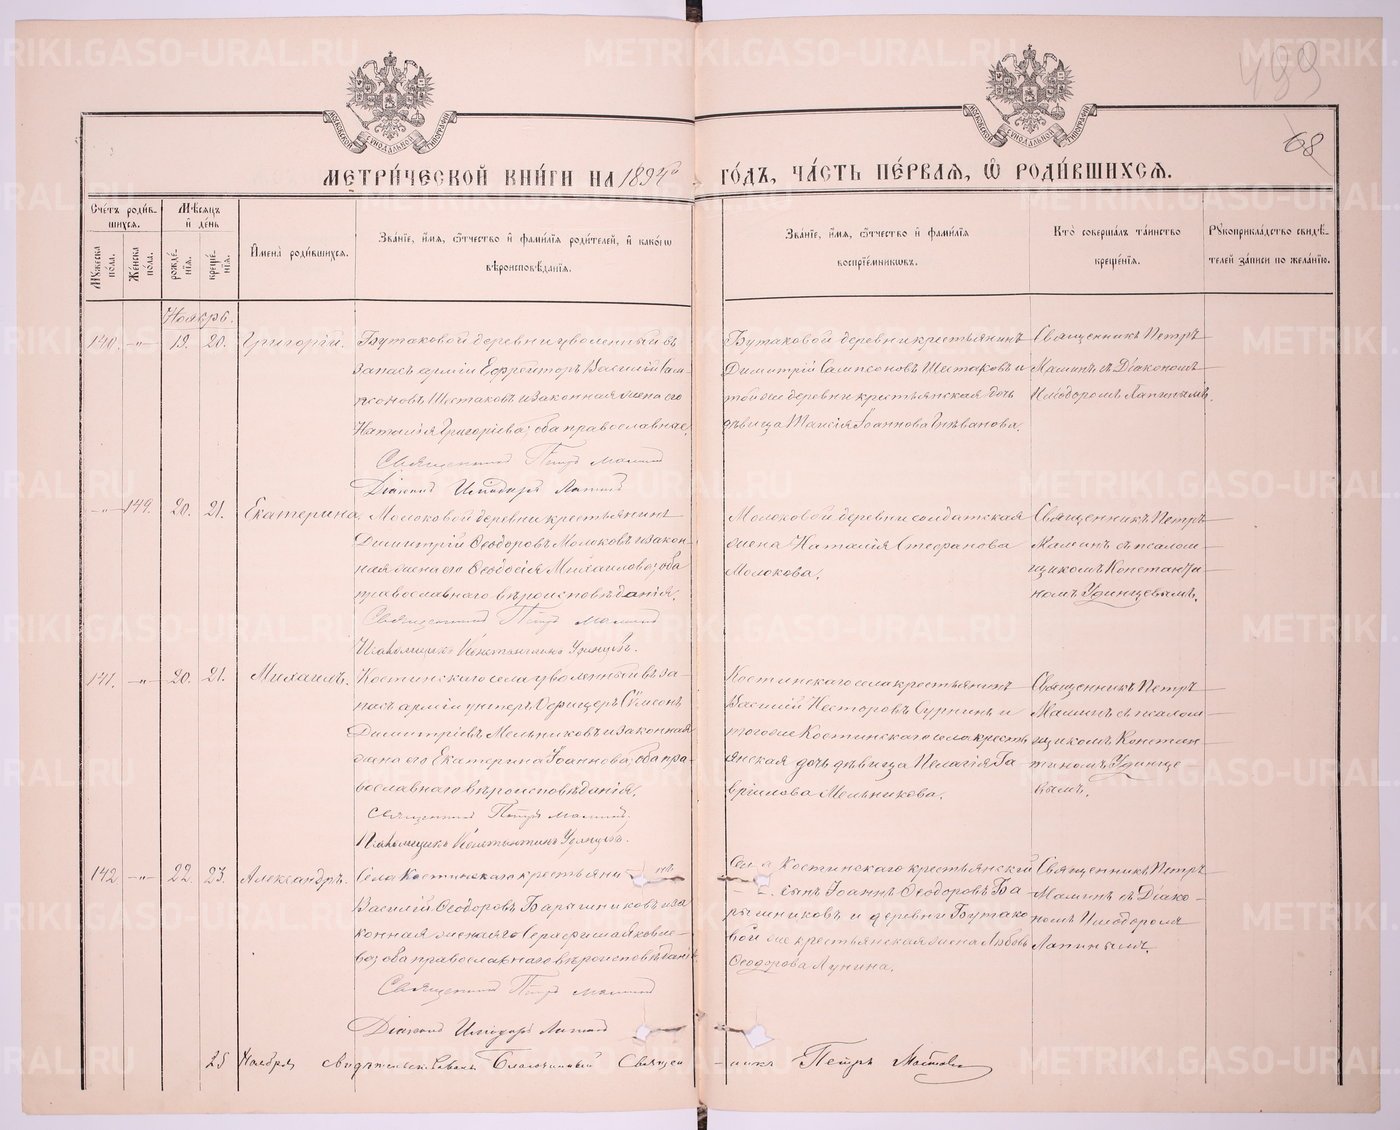 499
68
МОСКОВСКОЙ СѴНОДАЛЬНОЙ ТИПОГРАФІИ
МОСКОВСКОЙ СѴНОДАЛЬНОЙ ТИПОГРАФІИ
МЕТРИ́ЧЕСКОЙ КНИ́ГИ НА 1894й ГО́ДЪ, ЧА́СТЬ ПЕ́РВАЯ, Ѡ҆ РОДИ́ВШИХСЯ.
Сче́тъ роди́в-
шихся.
Мꙋ́жеска по́ла.
Же́нска по́ла.
Мѣ́сяцъ и҆ де́нь
рожде́-
нїя.
креще́-
нїя.
И҆мена̀ роди́вшихся.
Зва́нїе, и҆́мя, ѻ҆́тчество и҆ фами́лїя роди́телей, и҆ како́гѡ
вѣроисповѣ́данїя.
Зва́нїе, и҆́мя, ѻ҆́тчество и҆ фами́лїя
воспрїе́мниковъ.
Кто̀ соверша́лъ та́инство
креще́нїя.
Рꙋкоприкла́дство свидѣ́-
телей за́писи по жела́нїю.
Ноябрь.
140. -„- 19. 20. Григорій.
Бутаковой деревни уволенный въ
запасъ арміи Ефрейторъ Василій Сам-
псоновъ Шестаковъ и законная жена его
Наталія Григоріева; оба православные.
Священникъ Петръ Маминъ
Діаконъ Исидоръ Лапинъ
Бутаковой деревни крестьянинъ
Димитрій Сампсоновъ Шестаковъ и
той же деревни крестьянская дочь
дѣвица Таисія Іоаннова
Священникъ Петръ
Маминъ съ Діакономъ
Исидоромъ Лапинымъ.
-„- 149. 20. 21. Екатерина.
Молоковой деревни крестьянинъ
Димитрій Ѳеодоровъ Молоковъ и закон-
ная жена его Ѳеодосія Михаилова; оба
православнаго вѣроисповѣданія.
Священникъ Петръ Маминъ
Псаломщикъ Константинъ Удинцевъ.
Молоковой деревни солдатская
жена Наталія Стефанова
Молокова.
Священникъ Петръ
Маминъ съ псалом-
щикомъ Константи-
номъ Удинцевымъ.
141. -„- 20. 21. Михаилъ.
Костинскаго села уволенный въ за-
пасъ арміи унтеръ Офицеръ Сѵмеонъ
Димитріевъ Мельниковъ и законная
жена его Екатерина Іоаннова; оба пра-
вославнаго вѣроисповѣданія.
Священникъ Петръ Маминъ.
Псаломщикъ Константинъ Удинцевъ.
Костинскаго села крестьянинъ
Василій Несторовъ Сурнинъ и
того же Костинскаго села кресть
янская дочь дѣвица Пелагія Га
вріилова Мельникова.
Священникъ Петръ
Маминъ съ псалом
щикомъ Констан-
тиномъ Удинце
вымъ.
142. -„- 22. 23. Александръ.
Села Костинскаго крестьянинъ
Василій Ѳеодоровъ Барышниковъ и за
конная жена его Серафима Яковле-
ва; оба православнаго вѣроисповѣданія
Священникъ Петръ Маминъ
Діаконъ Исидоръ Лапинъ
Села Костинскаго крестьянскій
сынъ Іоаннъ Ѳеодоровъ Ба
рышниковъ и деревни Бутако
вой же крестьянская жена Любовь
Ѳеодорова Лунина.
Священникъ Петръ
Маминъ съ Діако-
номъ Исидоромъ
Лапинымъ
25 Ноября Свидѣтельствовалъ Благочинный Священ-никъ Петръ
METRIKI.GASO-URAL.RU